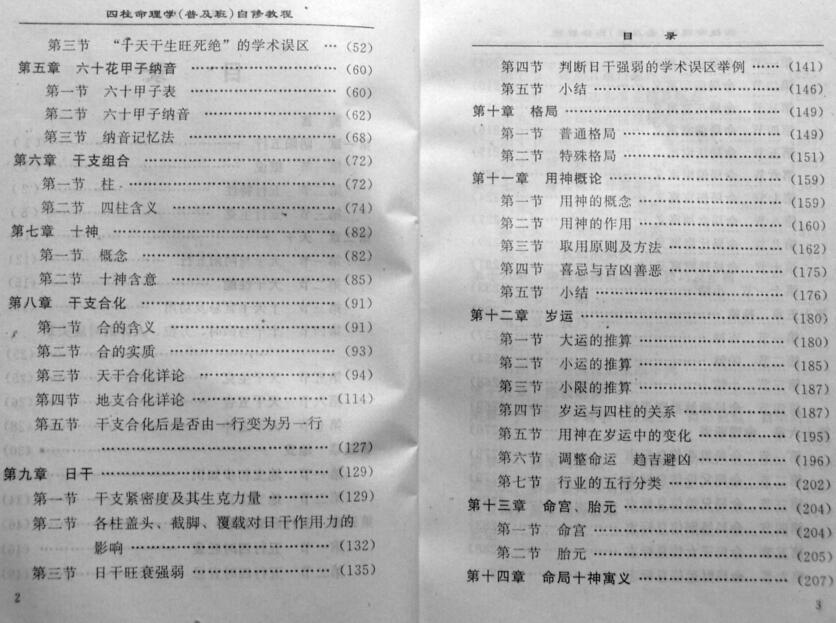 四柱命理学(普及班)自修教程
第三节 “十天干生旺死绝”的学术误区 …(52)
第五章 六十花甲子纳音 ……………………(60)
第一节 六十甲子表 ……………………(60)
第二节 六十甲子纳音 ……………………(62)
第三节 纳音记忆法 ……………………(68)
第六章 干支组合 ……………………(72)
第一节 柱 ……………………(72)
第二节 四柱含义 ……………………(74)
第七章 十神 ……………………(82)
第一节 概念 ……………………(82)
第二节 十神含意 ……………………(85)
第八章 干支合化 ……………………(91)
第一节 合的含义 ……………………(91)
第二节 合的实质 ……………………(93)
第三节 天干合化详论 ……………………(94)
第四节 地支合化详论 ……………………(114)
第五节 干支合化后是否由一行变为另一行
……………………(127)
第九章 日干 ……………………(129)
第一节 干支紧密度及其生克力量 …………(129)
第二节 各柱盖头、截脚、覆载对日干作用力的
影响 ……………………(132)
第三节 日干旺衰强弱 ……………………(135)
2
目录
第四节 判断日干强弱的学术误区举例 ……(141)
第五节 小结 ……………………(146)
第十章 格局 ……………………(149)
第一节 普通格局 ……………………(149)
第二节 特殊格局 ……………………(151)
第十一章 用神概论 ……………………(159)
第一节 用神的概念 ……………………(159)
第二节 用神的作用 ……………………(160)
第三节 取用原则及方法 ……………………(162)
第四节 喜忌与吉凶善恶 ……………………(175)
第五节 小结 ……………………(176)
第十二章 岁运 ……………………(180)
第一节 大运的推算 ……………………(180)
第二节 小运的推算 ……………………(185)
第三节 小限的推算 ……………………(187)
第四节 岁运与四柱的关系 ……………………(187)
第五节 用神在岁运中的变化 ……………………(195)
第六节 调整命运 趋吉避凶 ……………………(196)
第七节 行业的五行分类 ……………………(202)
第十三章 命宫、胎元 ……………………(204)
第一节 命宫 ……………………(204)
第二节 胎元 ……………………(205)
第十四章 命局十神寓义 ……………………(207)
3